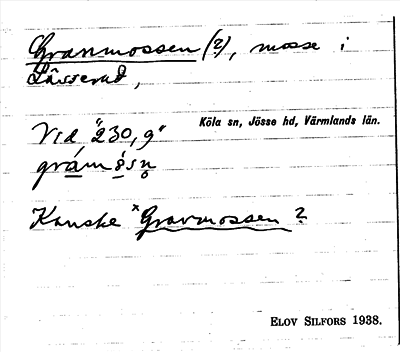 Granmossen (?), mosse i
Lässerud,
Köla sn, Jösse hd, Värmlands län.
Vid "230,9"
grámòsn̥
Kanske ×Gravmossen?
ELOV SILFORS 1938.